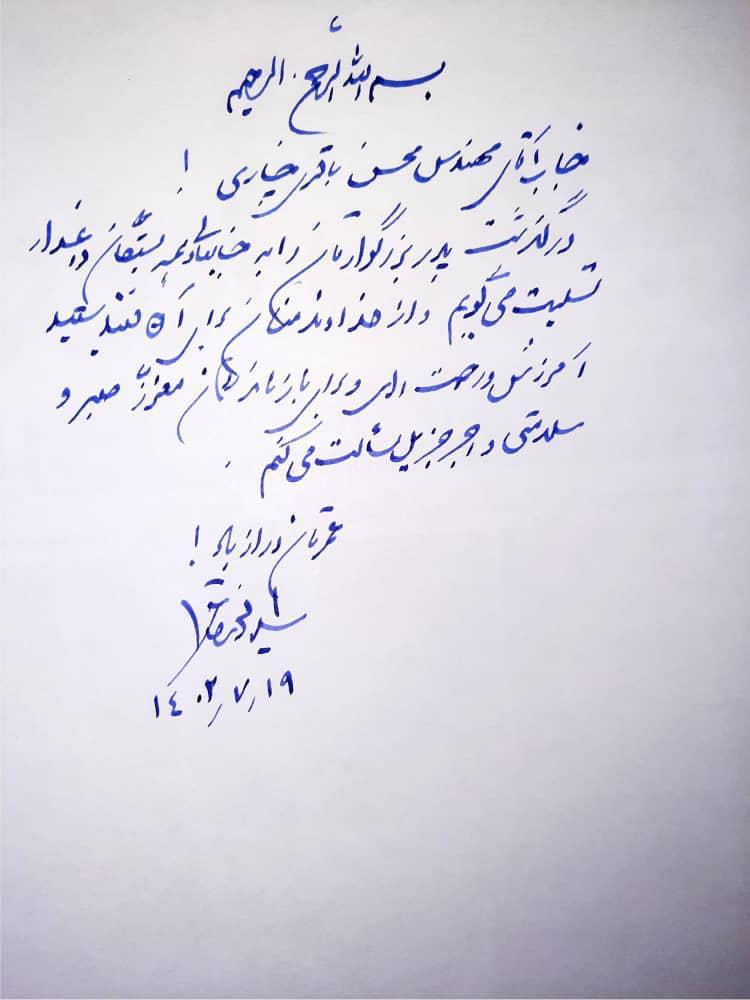 بسم الله الرحمن الرحیم
جناب آقای مهندس محسن باقری خیاری !
درگذشت پدر بزرگوارتان را به جنابعالی و همه بستگان داغدار
تسلیت می‌گویم و از خداوند منان برای آن فقید سعید
آمرزش و رحمت الهی و برای بازماندگان معزز صبر و
سلامتی و اجر جزیل مسألت می کنم .
عمرتان دراز باد !
سید
۱۴۰۲٫۷٫۱۹